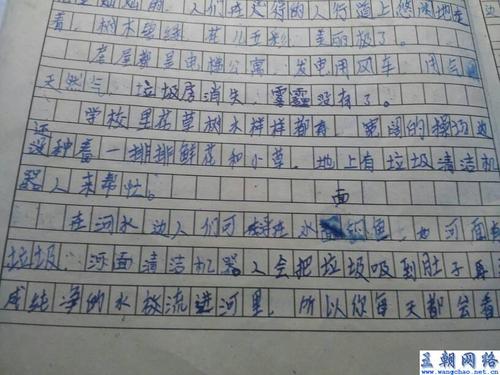 着,树木翠绿,花儿五彩,美丽极了。
居屋都是电梯公寓,发电用风车,用气
天然气,垃圾房消失,雾霾没有了。
学校里花草树木样样都有,宽阔的操场边
还没种着一排排鲜花和小草。地上有垃圾清洁机
器人来帮忙。
在河水边人们可在水面钓鱼,如河面有
垃圾,河面清洁机器人会把垃圾吸到肚子再
成纯净的水放流进河里。所以你每天都会看
王朝网络
www.wangchao.net.cn